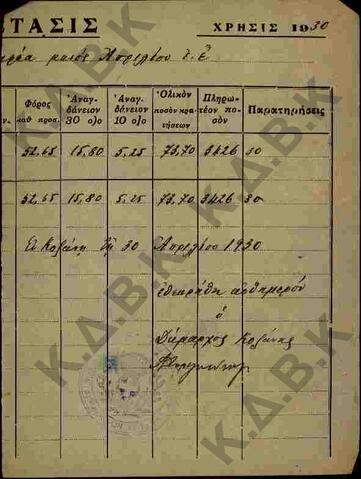 ΤΑΣΙΣ ΧΡΗΣΙΣ 1930
μηνὸς Ἀπριλίου ἐ. ἔ.
Φόρος καθ. προσ. Ἀναγ. δάνειον 30 ο)ο Ἀναγ. δάνειον 10 ο)ο Ὁλικὸν ποσὸν κρατήσεων Πληρωτέον ποσὸν Παρατηρήσεις
52,65 15,80 5,25 73,70 3426 30
52,65 15,80 5,25 73,70 3426 30
Ἐν Κοζάνῃ τῇ 30 Ἀπριλίου 1930
ἐθεωρήθη αὐθημερόν
ὁ
Δήμαρχος Κοζάνης
Κ.Δ.Β.Κ